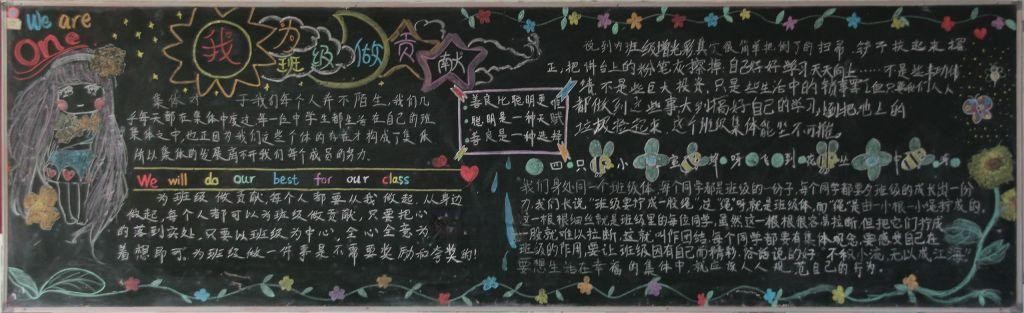 We are
One
我为班级做贡献
集体对 于我们每个人并不陌生,我们几
乎每天都在集体中度过,每一位中学生都生活在自己的班
集体之中,也正因为我们这些个体的存在才构成了集体
所以集体的发展离不开我们每个成员的努力.
We will do our best for our class
为班级做贡献,每个人都要从我做起,从身边
做起,每个人都可以为班级做贡献,只要把心
的落到实处,只要以班级为中心,全心全意为
着想即可.为班级做一件事是不需要奖励和夸奖的!
善良比聪明更
聪明是一种天赋
善良是一种选择
说到为班级增光彩,真 很简单把倒了的扫帚
正,把讲台上的粉笔灰擦掉 自己好好学习天天向上……不是些
绩 不是些巨大投资,只是些生活中的 人人
都做到 这些事大到搞好自己的学习,
垃圾捡起来,这个班级集体能坚不可摧.
四 只 小 蜜 呀 飞 到 花 丛 中 呀
我们身处同一个班级体,每个同学都是班级的一份子,每个同学都要为班级的成长出一份
力.我们长说"班级要拧成一股绳"这"绳"呀就是班级体,而"绳"是由一小根一小绳拧成的,
这一根根细丝就是班级里的每位同学,虽然这一根根很容易拉断但把它们拧成
一股就难以拉断.这就叫作团结,每个同学都要有集体观念,要感受自己在
班级的作用,要让班级因有自己而精彩.俗话说的好"不积小流无以成江海"
要想生活在幸福的集体中,就应该人人规范自己的行为.